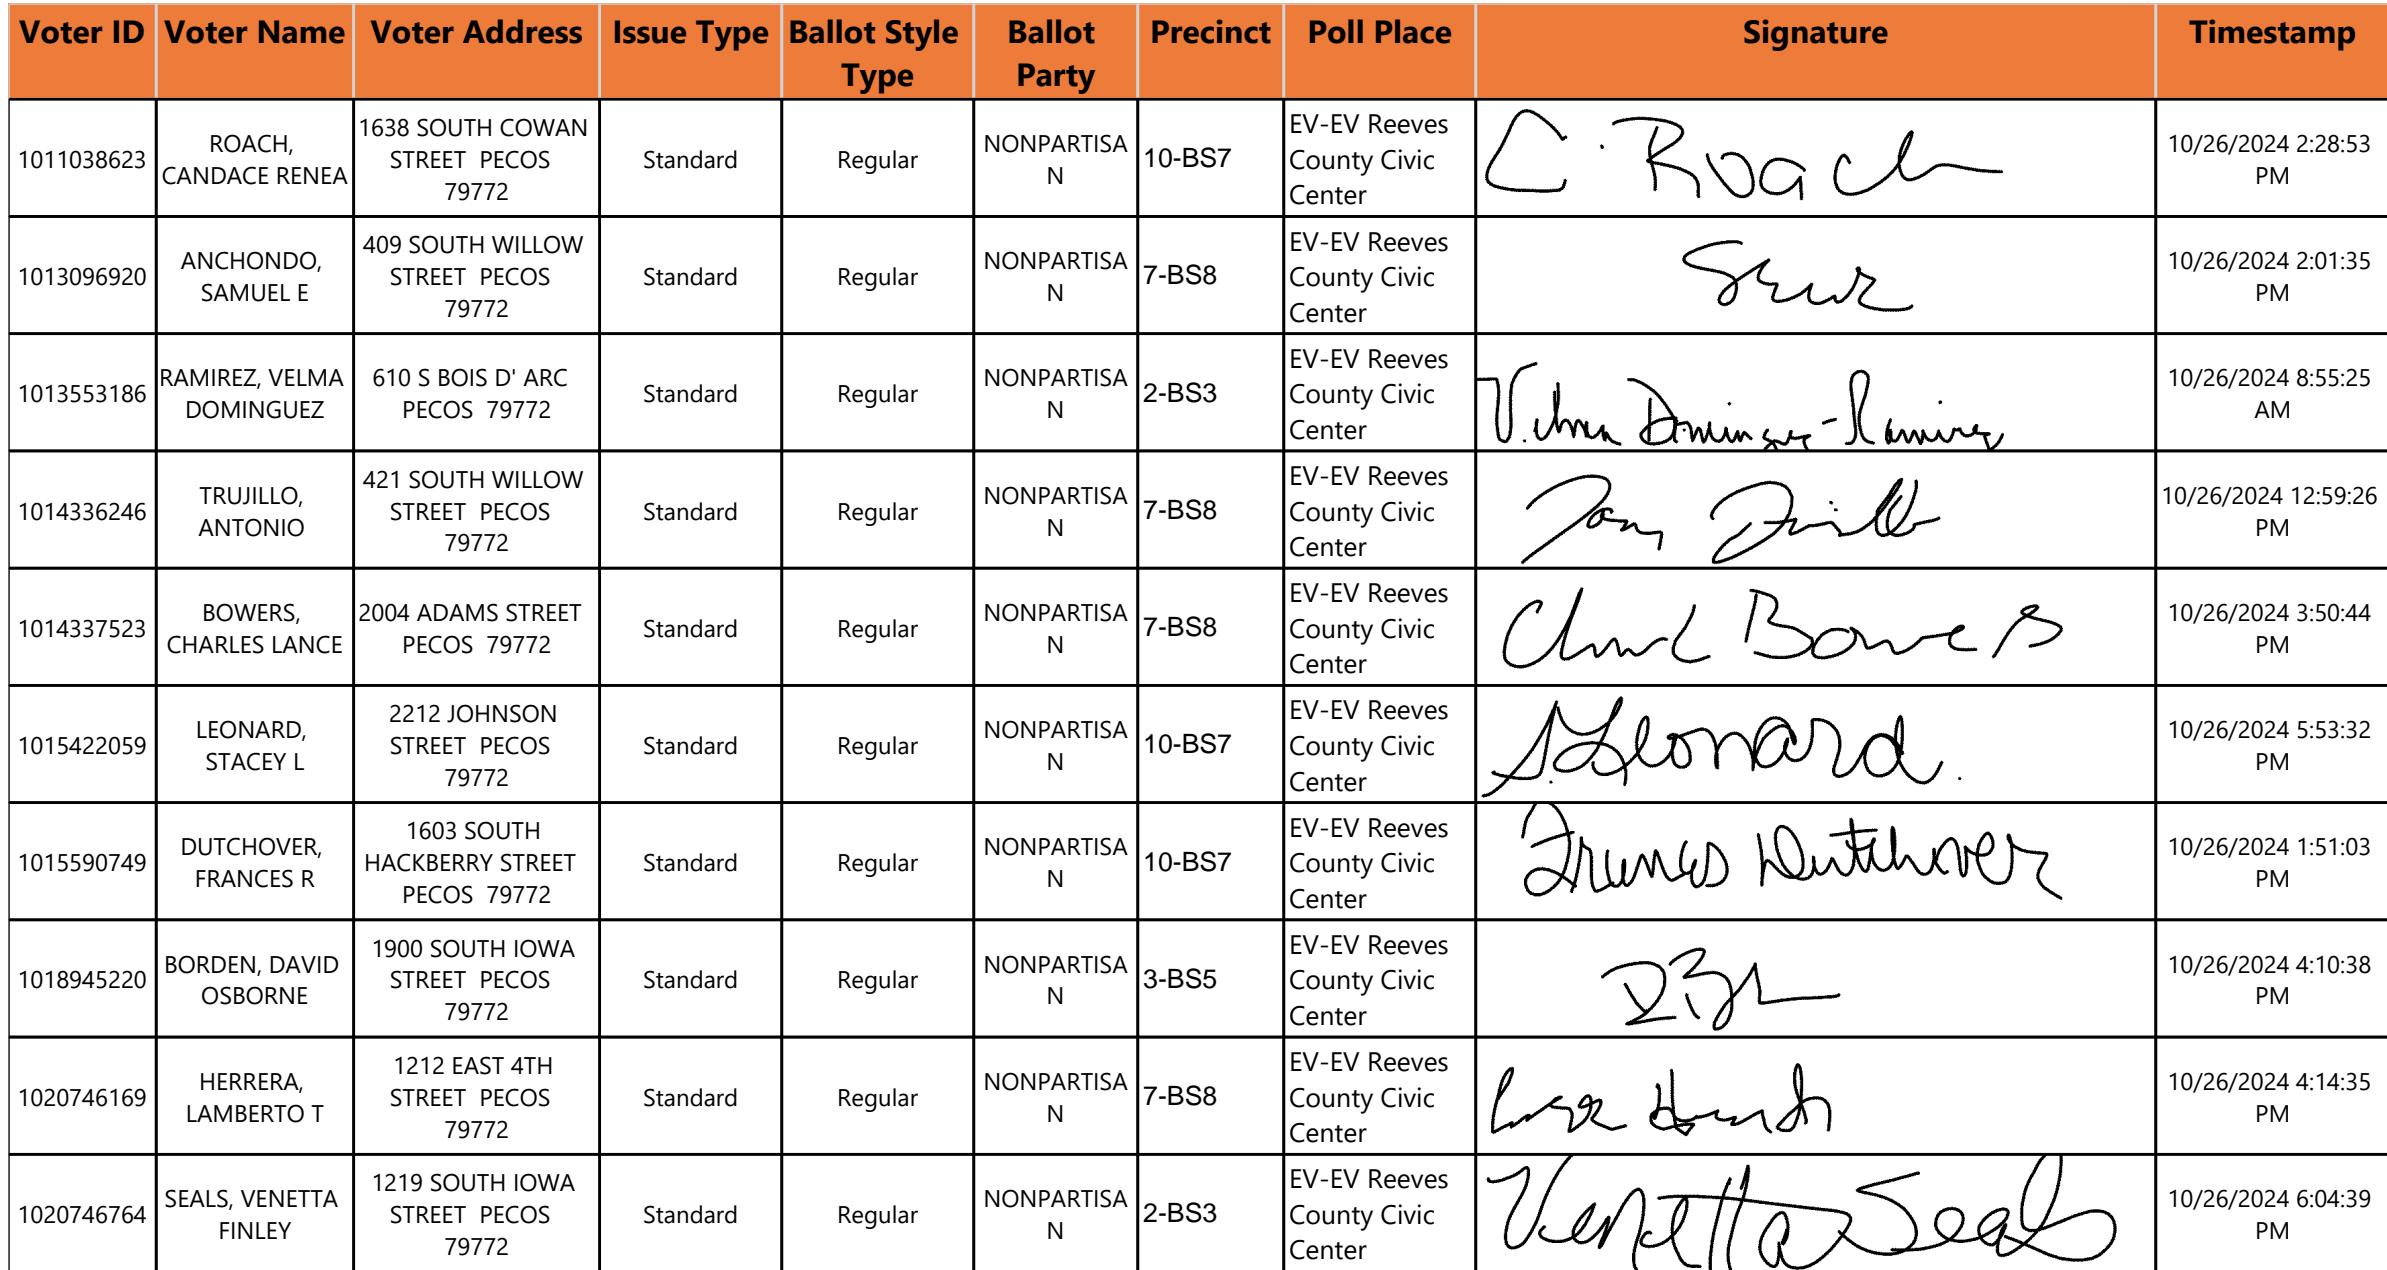 Voter ID Voter Name Voter Address Issue Type Ballot Style Type Ballot Party Precinct Poll Place Signature Timestamp
1011038623 ROACH, CANDACE RENEA 1638 SOUTH COWAN STREET PECOS 79772 Standard Regular NONPARTISAN 10-BS7 EV-EV Reeves County Civic Center C. Roach 10/26/2024 2:28:53 PM
1013096920 ANCHONDO, SAMUEL E 409 SOUTH WILLOW STREET PECOS 79772 Standard Regular NONPARTISAN 7-BS8 EV-EV Reeves County Civic Center 10/26/2024 2:01:35 PM
1013553186 RAMIREZ, VELMA DOMINGUEZ 610 S BOIS D' ARC PECOS 79772 Standard Regular NONPARTISAN 2-BS3 EV-EV Reeves County Civic Center Velma Dominguez-Ramirez 10/26/2024 8:55:25 AM
1014336246 TRUJILLO, ANTONIO 421 SOUTH WILLOW STREET PECOS 79772 Standard Regular NONPARTISAN 7-BS8 EV-EV Reeves County Civic Center Tony Trujillo 10/26/2024 12:59:26 PM
1014337523 BOWERS, CHARLES LANCE 2004 ADAMS STREET PECOS 79772 Standard Regular NONPARTISAN 7-BS8 EV-EV Reeves County Civic Center Bowers 10/26/2024 3:50:44 PM
1015422059 LEONARD, STACEY L 2212 JOHNSON STREET PECOS 79772 Standard Regular NONPARTISAN 10-BS7 EV-EV Reeves County Civic Center S. Leonard 10/26/2024 5:53:32 PM
1015590749 DUTCHOVER, FRANCES R 1603 SOUTH HACKBERRY STREET PECOS 79772 Standard Regular NONPARTISAN 10-BS7 EV-EV Reeves County Civic Center Frances Dutchover 10/26/2024 1:51:03 PM
1018945220 BORDEN, DAVID OSBORNE 1900 SOUTH IOWA STREET PECOS 79772 Standard Regular NONPARTISAN 3-BS5 EV-EV Reeves County Civic Center 10/26/2024 4:10:38 PM
1020746169 HERRERA, LAMBERTO T 1212 EAST 4TH STREET PECOS 79772 Standard Regular NONPARTISAN 7-BS8 EV-EV Reeves County Civic Center 10/26/2024 4:14:35 PM
1020746764 SEALS, VENETTA FINLEY 1219 SOUTH IOWA STREET PECOS 79772 Standard Regular NONPARTISAN 2-BS3 EV-EV Reeves County Civic Center Venetta Seals 10/26/2024 6:04:39 PM